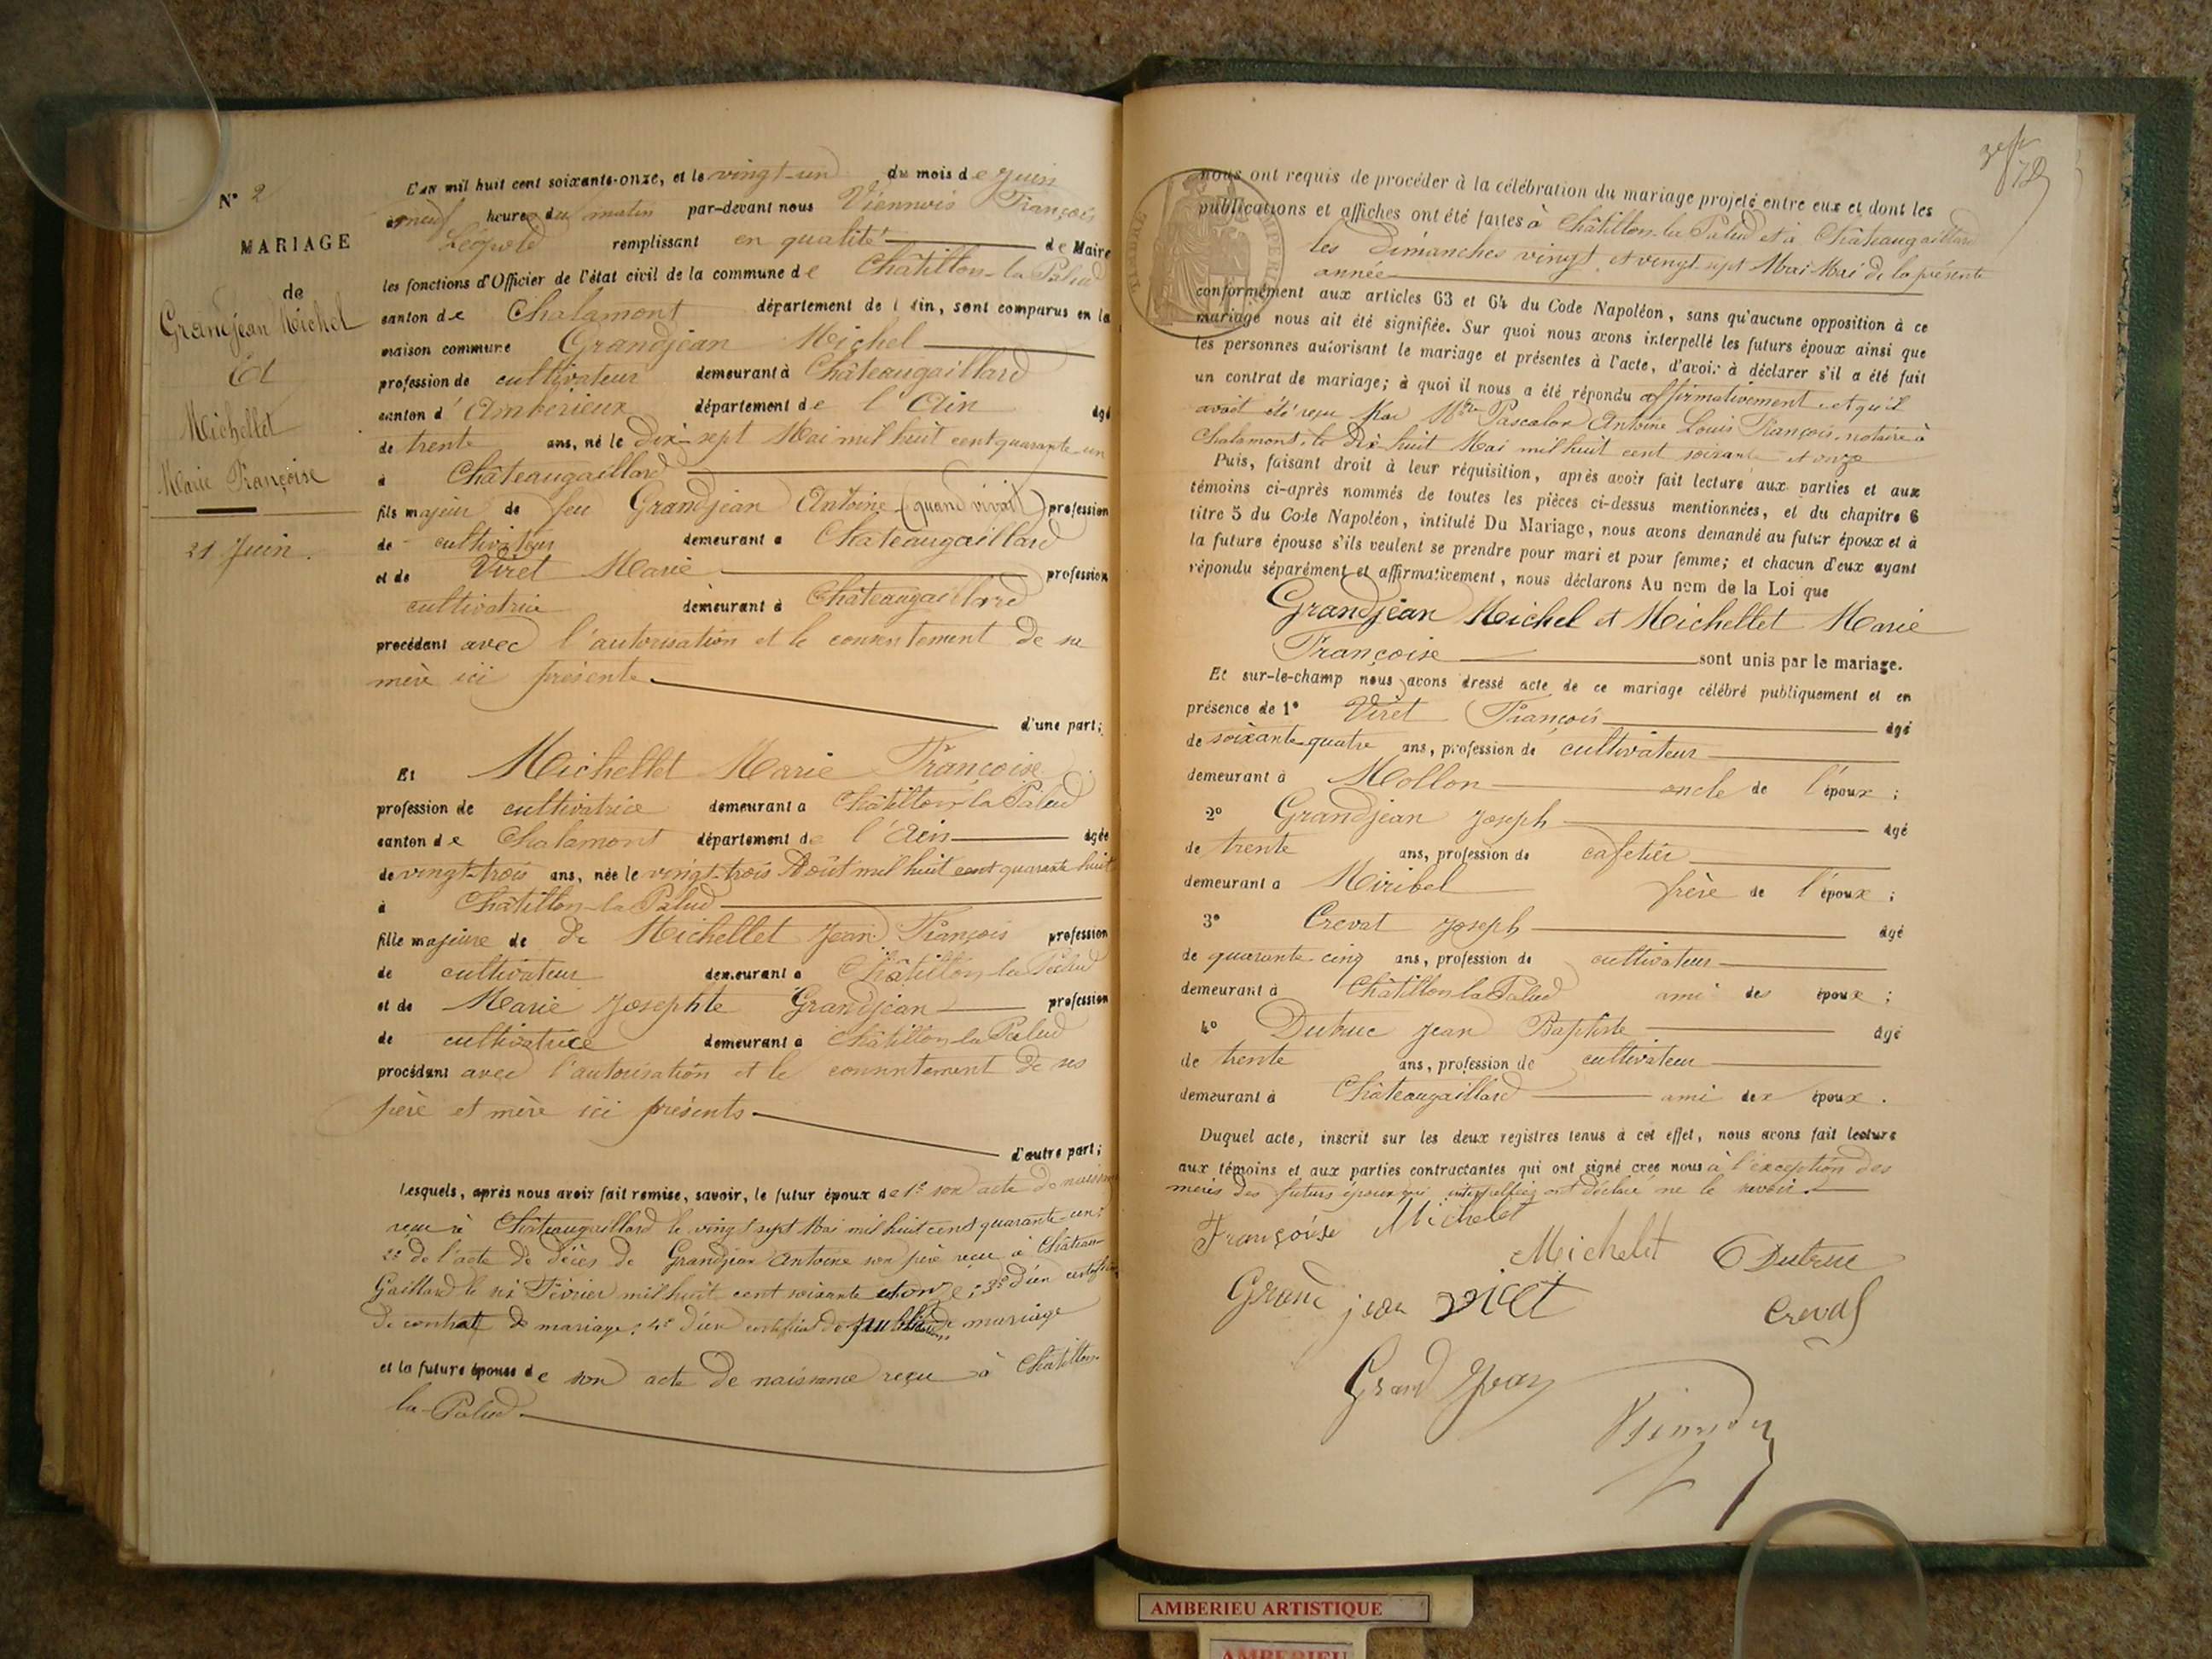 N° 2
MARIAGE
de
Grandjean Michel
Et
Michellet
Marie Françoise
21 Juin.
L'an mil huit cent soixante-onze, et le vingt-un du mois de Juin
à neuf heures du matin par-devant nous Viennois François
Léopold remplissant en qualité de Maire
les fonctions d'Officier de l'état civil de la commune de Châtillon-la Palud
canton de Chalamont département de l'Ain, sont comparus en la
maison commune Grandjean Michel
profession de cultivateur demeurant à Châteaugaillard
canton d'Ambérieux département de l'Ain âgé
de trente ans, né le dix-sept Mai mil huit cent quarante-un
à Châteaugaillard
fils majeur de feu Grandjean Antoine (quand vivait) profession
de cultivateur demeurant à Châteaugaillard
et de Viret Marie profession
cultivatrice demeurant à Châteaugaillard
procédant avec l'autorisation et le consentement de sa
mère ici présente.
d'une part;
Et Michellet Marie Françoise
profession de cultivatrice demeurant à Châtillon la Palud
canton de Chalamont département de l'Ain âgée
de vingt-trois ans, née le vingt-trois Août mil huit cent quarante huit
à Châtillon-la Palud
fille majeure de de Michellet Jean François profession
de cultivateur demeurant à Châtillon-la Palud
et de Marie Josephte Grandjean profession
de cultivatrice demeurant à Châtillon-la Palud
procédant avec l'autorisation et le consentement de ses
père et mère ici présents.
d'autre part;
Lesquels, après nous avoir fait remise, savoir, le futur époux de 1° son acte de naissance
reçu à Châteaugaillard le vingt sept Mai mil huit cent quarante-un;
2° de l'acte de décès de Grandjean Antoine son père reçu à Château-
Gaillard le six Février mil huit cent soixante et onze; 3° d'un certificat
de contrat de mariage; 4° d'un certificat de publications de mariage
et la future épouse de son acte de naissance reçu à Châtillon-
la-Palud.
nous ont requis de procéder à la célébration du mariage projeté entre eux et dont les
publications et affiches ont été faites à Châtillon-la Palud et à Châteaugaillard
les dimanches vingt et vingt-sept Mai Mai de la présente
année
conformément aux articles 63 et 64 du Code Napoléon, sans qu'aucune opposition à ce
mariage nous ait été signifiée. Sur quoi nous avons interpellé les futurs époux ainsi que
les personnes autorisant le mariage et présentes à l'acte, d'avoir à déclarer s'il a été fait
un contrat de mariage; à quoi il nous a été répondu affirmativement et qu'il
avait été reçu par Mtre Pascalon Antoine Louis François, notaire à
Chalamont, le dix-huit Mai mil huit cent soixante et onze
Puis, faisant droit à leur réquisition, après avoir fait lecture aux parties et aux
témoins ci-après nommés de toutes les pièces ci-dessus mentionnées, et du chapitre 6
titre 5 du Code Napoléon, intitulé Du Mariage, nous avons demandé au futur époux et à
la future épouse s'ils veulent se prendre pour mari et pour femme; et chacun d'eux ayant
répondu séparément et affirmativement, nous déclarons Au nom de la Loi que
Grandjean Michel et Michellet Marie
Françoise sont unis par le mariage.
Et sur-le-champ nous avons dressé acte de ce mariage célébré publiquement et en
présence de 1° Viret François âgé
de soixante-quatre ans, profession de cultivateur
demeurant à Mollon oncle de l'époux;
2° Grandjean Joseph âgé
de trente ans, profession de cafetier
demeurant à Miribel frère de l'époux;
3° Crevat Joseph âgé
de quarante-cinq ans, profession de cultivateur
demeurant à Châtillon la Palud ami des époux;
4° Dutruc Jean Baptiste âgé
de trente ans, profession de cultivateur
demeurant à Châteaugaillard ami des époux.
Duquel acte, inscrit sur les deux registres tenus à cet effet, nous avons fait lecture
aux témoins et aux parties contractantes qui ont signé avec nous à l'exception des
mères des futurs époux qui interpellées ont déclaré ne le savoir.
Françoise Michelet
Michelet Dutruc
Grand jean viret
Crevat
Grand Jean
Viennois
TIMBRE IMPERIAL
AMBERIEU ARTISTIQUE
AMBERIEU